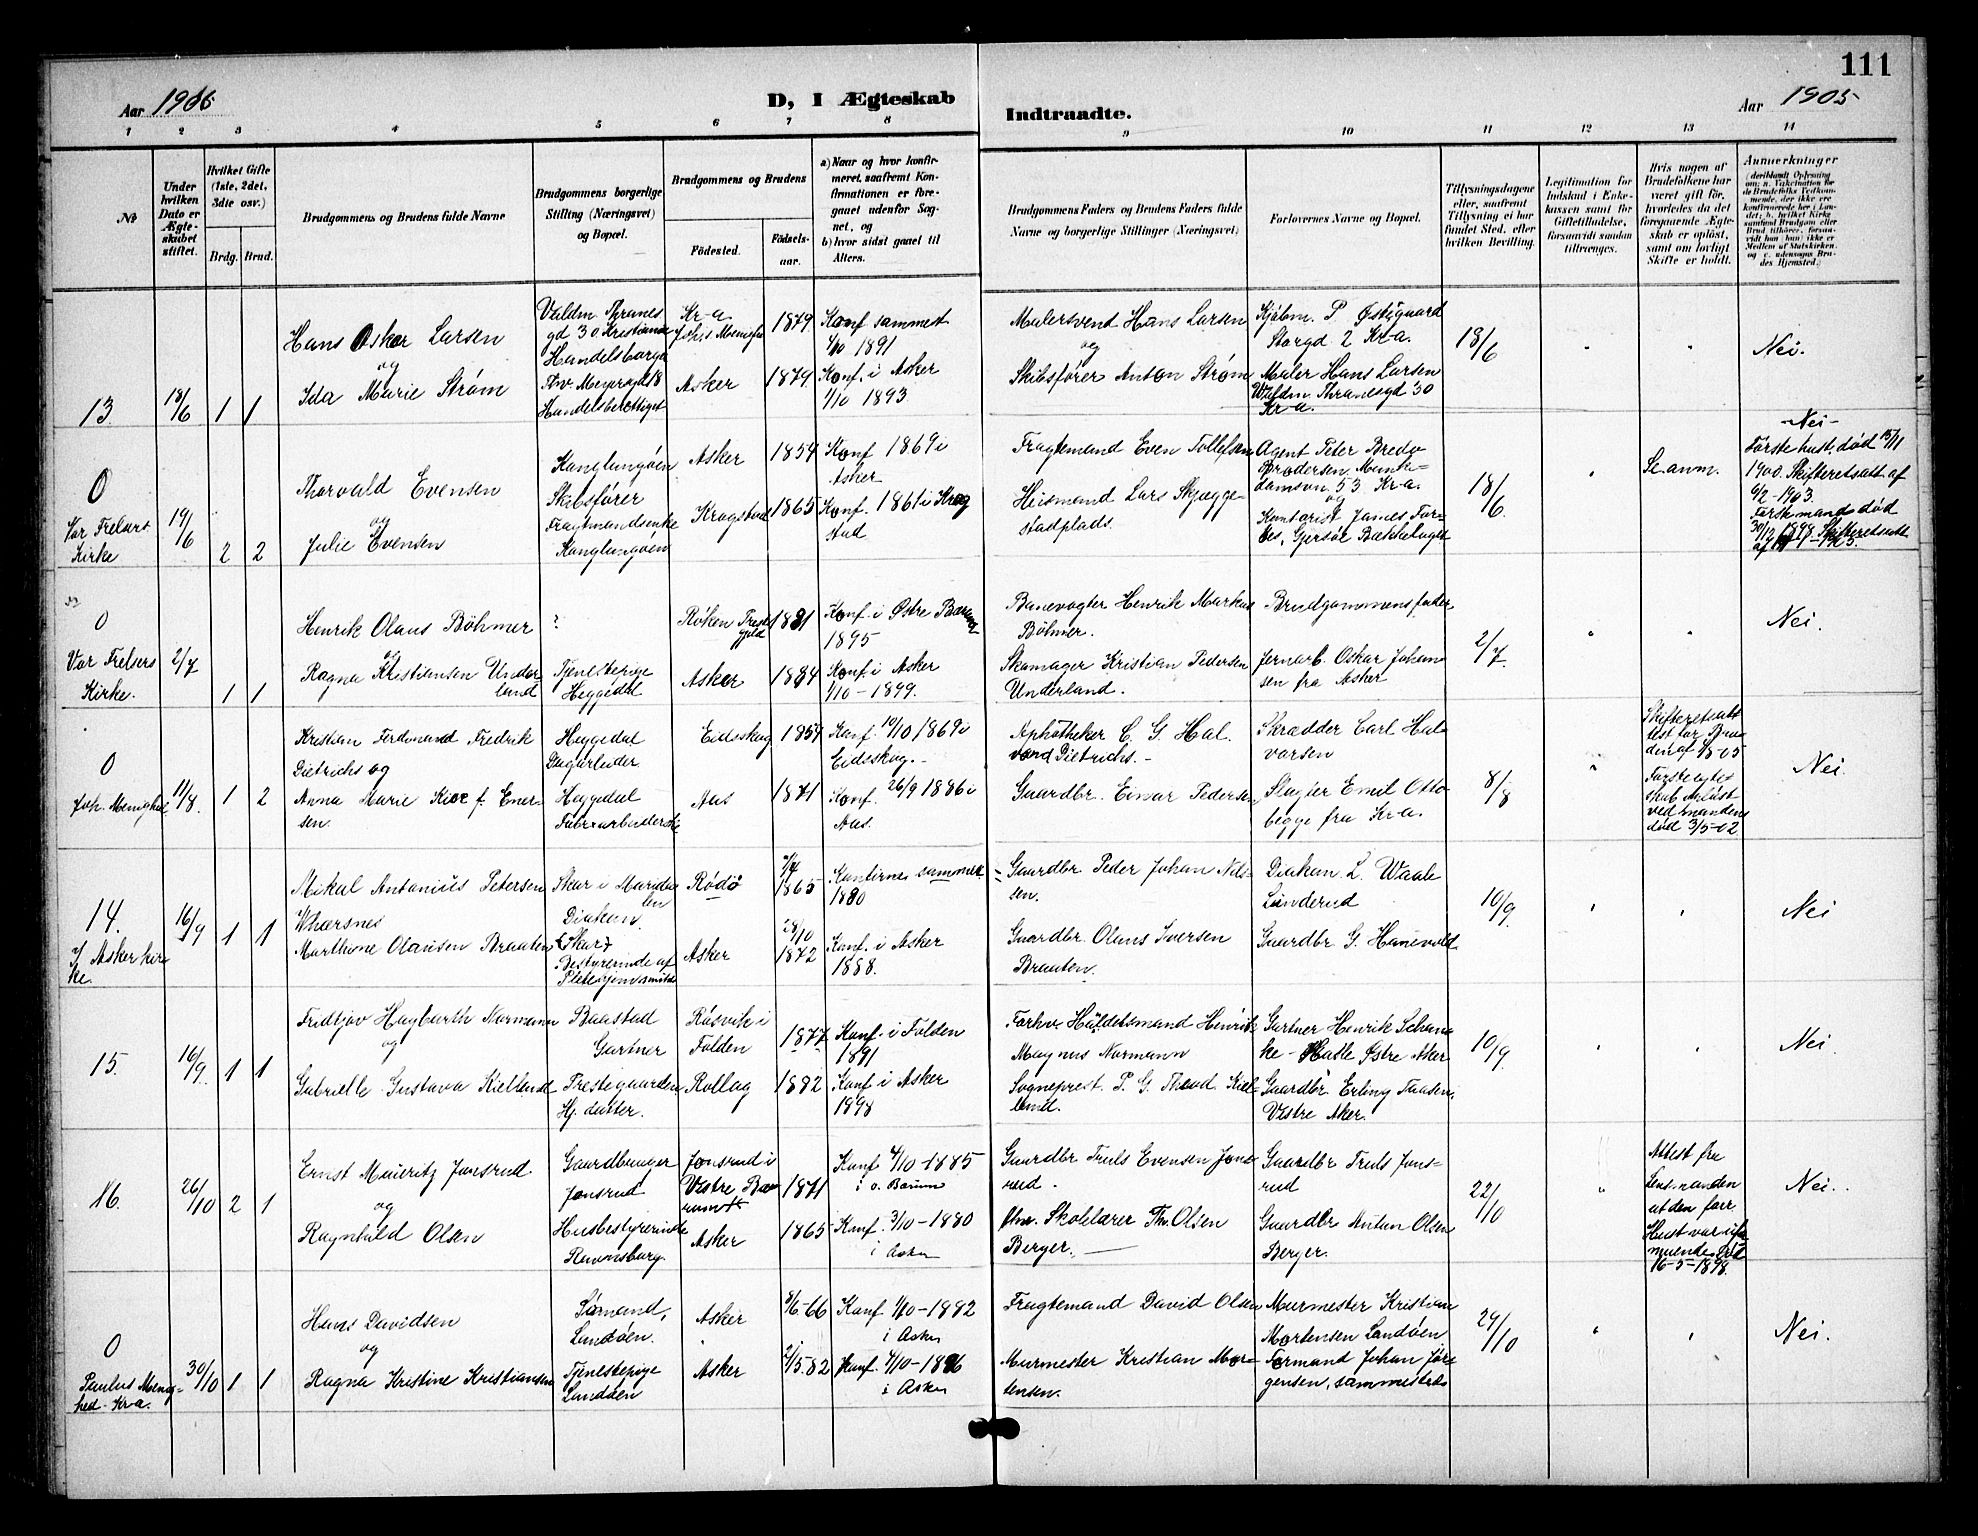 111
Aar 1905
D, I Ægteskab
Indtraadte.
Aar 1905
1 2 3 4 5 6 7 8 9 10 11 12 13 14
No
Under hvilken Dato er Ægteskabet stiftet.
Hvilket Gifte (1ste, 2det, 3die osv.)
Brdg. Brud.
Brudgommens og Brudens fulde Navne
Brudgommens borgerlige Stilling (Næringsvei) og Bopæl.
Brudgommens og Brudens
Fødested.
Fødselsaar.
a) Naar og hvor konfirmeret, saafremt Konfirmationen er foregaaet udenfor Sognet, og
b) hvor sidst gaaet til Alters.
Brudgommens Faders og Brudens Faders fulde Navne og borgerlige Stillinger (Næringsvei)
Forlovernes Navne og Bopæl.
Tillysningsdagene eller, saafremt Tillysning ei har fundet Sted, efter hvilken Bevilling.
Legitimation for Indskud i Enkekassen samt for Giftetilladelse, forsaavidt saadan tiltrænges.
Hvis nogen af Brudefolkene har været gift før, hvorledes da det foregaaende Ægteskab er opløst, samt om lovligt Skifte er holdt.
Anmerkninger
13. 18/6 1 1
Hans Oskar Larsen
og
Ida Marie Strøm
Valdm Thranes
gd 30 Kristiania
Handelsborger
Thv Meyersgd 18
Handelsberettiget
Kr-a
Asker
1879
1879
Konf sammest
1/10 1891
Konf. i Asker
1/10 1893
Malersvend Hans Larsen
og
Skibsfører Anton Strøm
Kjøbm. P Østigaard
Storgd 2 Kr-a.
Maler Hans Larsen
Valdm. Thranesgd 30
Kr-a.
18/6
Nei.
0
Vor Frelsers
Kirke
19/6 2 2
Thorvald Evensen
og
Julie Evensen
Langlungøen
Skibsfører
Fragtmandsenke
Langlungøen
Asker
Kragstad
1854
1865
Konf 1869 i
Asker
Konf. 1861 i Krag
stad
Fragtemand Even Tollefsen
Heismand Lars Skjægge-
stadplads.
Agent Peter Bredo
Brodersen Munke-
damsvn. 53 Kr-a.
og
Kontorist James For-
bes, Gjersøe Bækkelaget
18/6.
Se anm.
Nei
Første hust. død 15/11
1900. Skifteretsatt af
6/2-1903.
Første mands død
30/12 1898 Skifteretsatt
0
Vor Frelsers
Kirke.
2/7 1 1
Henrik Olaus Böhmer
og
Ragna Kristiansen Under
land
?
Tjenestepige
Heggedal
Røken Preste
gjeld
Asker
1881
1884
Konf. i Østre Bærum
1895
Konf. i Asker
1/10-1899.
Banevogter Henrik Markus
Böhmer.
Skomager Kristian Pedersen
Underland.
Brudgommens fader
Jernarb. Oskar Johan
sen fra Asker
2/7.
Nei.
0
Joh. Menighed
11/8. 1 2
Kristian Ferdinand Fredrik
Dietrichs og
Anna Marie Kiær f. Ener-
sen.
Heggedal
Dagarbeider
Heggedal
Fabrikarbeiderske
Eidskog
Aas
1854
1871
Konf. 10/10 1869 i
Eidskog.-
Konf. 26/9 1886 i
Aas.
Aphotheker C. G. Hal.
vord Dietrichs.-
Gaardbr. Einar Pedersen
Skrædder Carl Hal
vorsen
Slagter Emil Otto
begge fra Kr-a.
8/8
Skifteretsatt
Første ægte
skab opløst
ved mandens
død 3/5-02
Nei
14.
i Asker kir
ke.
16/9 1 1
Mikal Antonius Petersen
Whærsnes
Marthine Olausen Braaten
Skar i Marida
len
Diakon
(Skar)
Bestyrerinde af
Rødø
Asker
1865
28/10
1872
Konfirme. sammest
1880
Konf. i Asker
1888.
Gaardbr. Peder Johan Nils-
sen.
Gaardbr. Olaus Iversen
Braaten.
Diakon L. Waale
Linderud
Gaardbr G. Hanevold
10/9.
Nei
15. 16/9. 1 1
Fridtjov Hagbarth Normann
og
Gabrielle Gustava Kielland
Baastad
Gartner
Prestegaarden
Hj. datter.
Røsvik i
Folden
Rollag
1877
1882
Konf. i Folden
1891
Konf i Asker
1898
Forhv. Handelsmand Henrik
Magnus Normann
Sogneprest P. G. Theod Kiel-
land.
Gartner Henrik Schan
ke - Østre Aker
Gaardbr Erling Taasen,
Vestre Aker.
10/9.
Nei.
16. 26/10 2 1
Ernst Mauritz Jonsrud
og
Ragnhild Olsen
Gaardbruger
Jonsrud
Husbestyrerinde
Ravnsborg.
Jonsrud i
Vestre Bæ
rum
Asker
1871
1865
Konf 4/10-1885
i v. Bærum
Konf. 3/10-1880
i Asker
Gaardbr Truls Evensen Jons
rud.
fhv. Skolelærer Th. Olsen
Berger.
Gaardbr Truls Jons-
rud
Gaardbr Anton Olsen
Berger.
22/10
Attest fra
Lensmanden
at den forr
Hust. var i for
muende død
16-5-1898.
Nei.
0
Paulus Menig-
hed - Kr.a.
30/10 1 1
Hans Davidsen
og
Ragna Kristine Kristiansen
Sømand,
Landøen.
Tjenestepige
Landøen
Asker
Asker
5/6-66
2/5-82
Konf 1/10-1882
i Asker
Konf. 4/10-1896
i Asker
Fragtemand David Olsen
Murmester Kristian Mor-
tensen.
Murmester Kristian
Mortensen Landøen
Formand Johan Jør-
gensen, sammesteds
29/10
Nei.